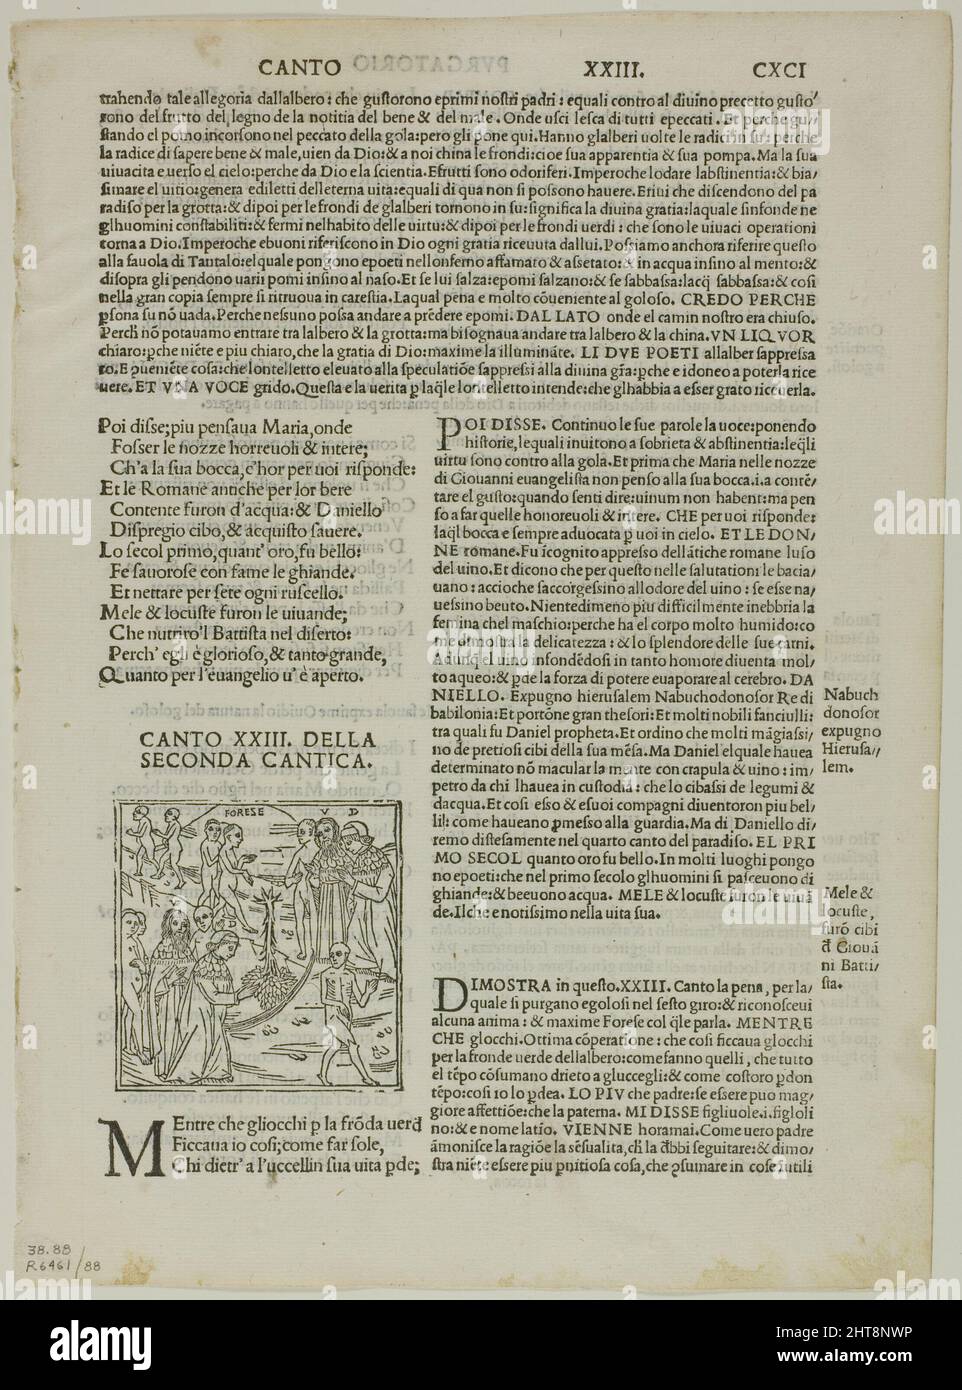 CANTO XXIII. CXCI
trahendo tale allegoria dallalbero: che gustorono e primi nostri padri: equali contro al diuino precetto gusto/
rono del frutto del legno de la notitia del bene & del male. Onde usci lesca di tutti e peccati. Et perche gu/
stando el pomo incorsono nel peccato della gola: pero gli pone qui. Hanno glalberi uolte le radici in su: perche
la radice di sapere bene & male, uien da Dio: & a noi china le frondi: cioe sua apparentia & sua pompa. Ma la sua
uiuacita e uerso el cielo: perche da Dio e la scientia. E frutti sono odoriferi. Imperoche lodare labstinentia: & bia/
simare el uitio: genera e diletti delleterna uita: equali di qua non si possono hauere. E riui che discendono del pa
radiso per la grotta: & dipoi per le frondi de glalberi tornono in su: significa la diuina gratia: laquale sinfonde ne
glhuomini constabiliti: & fermi nelhabito delle uirtu: & dipoi per le frondi uerdi: che sono le uiuaci operationi
torna a Dio. Imperoche e buoni riferiscono in Dio ogni gratia riceuuta dallui. Possiamo anchora riferire questo
alla fauola di Tantalo: el quale pongono e poeti nellonferno affamato & assetato: & in acqua insino al mento: &
disopra gli pendono uarii pomi insino al naso. Et se lui salza: e pomi salzano: & se sabbassa: lacq̃ sabbassa: & cosi
nella gran copia sempre si ritruoua in carestia. Laqual pena e molto cõueniente al goloso. CREDO PERCHE
ꝑsona su nõ uada. Perche nessuno possa andare a prẽdere epomi. DAL LATO onde el camin nostro era chiuso.
Perch̃ nõ potauamo entrare tra lalbero & la grotta: ma bisognaua andare tra lalbero & la china. VN LIQVOR
chiaro: ꝑche niẽte e piu chiaro, che la gratia di Dio: maxime la illuminãte. LI DVE POETI allalber sappressa
ro. E ꝯueniẽte cosa: che lontelletto eleuato alla speculatiõe sappressi alla diuina gr̃a: ꝑche e idoneo a poterla rice
uere. ET VNA VOCE grido. Questa e la uerita ꝑ laq̃le lontelletto intende: che glhabbia a esser grato riceuerla.
Poi disse; piu pensaua Maria, onde
Fosser le nozze horreuoli & intere;
Ch'a la sua bocca, c'hor per uoi risponde:
Et le Romane antiche per lor bere
Contente furon d'acqua: & Daniello
Dispregio cibo, & acquisto sauere.
Lo secol primo, quant' oro, fu bello:
Fe sauorose con fame le ghiande.
Et nettare per sete ogni ruscello.
Mele & locuste furon le uiuande;
Che nutriro'l Battista nel diserto:
Perch' egli è glorioso, & tanto grande,
Quanto per l'euangelio u' è aperto.
CANTO XXIII. DELLA
SECONDA CANTICA.
FORESE V D
MEntre che gliocchi ꝑ la frõda uerd
Ficcaua io cosi; come far sole,
Chi dietr' a l'uccellin sua uita ꝑde;
POI DISSE. Continuo le sue parole la uoce: ponendo
historie, lequali inuitono a sobrieta & abstinentia: leq̃li
uirtu sono contro alla gola. Et prima che Maria nelle nozze
di Giouanni euangelista non penso alla sua bocca. i. a contẽ/
tare el gusto: quando senti dire: uinum non habent: ma pen
so a far quelle honoreuoli & intere. CHE per uoi risponde:
laq̃l bocca e sempre aduocata ꝑ uoi in cielo. ET LE DON/
NE romane. Fu ĩcognito appresso dellãtiche romane luso
del uino. Et dicono che per questo nelle salutationi: le bacia/
uano: accioche saccorgessino allodore del uino: se esse na/
uessino beuto. Nientedimeno piu difficilmente inebbria la
femina chel maschio: perche ha el corpo molto humido: co
me dimostra la delicatezza: & lo splendore delle sue carni.
Adunq̃ el uino infondẽdosi in tanto homore diuenta mol/
to aqueo: & ꝑde la forza di potere euaporare al cerebro. DA
NIELLO. Expugno hierusalem Nabuchodonosor Re di
babilonia: Et portõne gran thesori: Et molti nobili fanciulli:
tra quali fu Daniel propheta. Et ordino che molti mãgiassi/
no de pretiosi cibi della sua mẽsa. Ma Daniel el quale hauea
determinato nõ macular la mente con crapula & uino: im/
petro da chi lhauea in custodia: che lo cibassi de legumi &
dacqua. Et cosi esso & e suoi compagni diuentoron piu bel/
li: come haueano ꝓmesso alla guardia. Ma di Daniello di/
remo distesamente nel quarto canto del paradiso. EL PRI
MO SECOL quanto oro fu bello. In molti luoghi pongo
no e poeti: che nel primo secolo glhuomini si pasceuono di
ghiande: & beeuono acqua. MELE & locuste furon le uiuã
de. Ilche e notissimo nella uita sua.
Nabuch
donosor
expugno
Hierusa//
lem.
Mele &
locuste,
furõ cibi
đ Giouã
ni Batti/
sta.
DIMOSTRA in questo. XXIII. Canto la pena, per la/
quale si purgano e golosi nel sesto giro: & riconosceui
alcuna anima: & maxime Forese col q̃le parla. MENTRE
CHE glocchi. Ottima cõperatione: che cosi ficcaua glocchi
per la fronde uerde dellalbero: come fanno quelli, che tutto
el tẽpo cõsumano drieto a gluccegli: & come costoro ꝑdon
tẽpo: cosi io lo ꝑdea. LO PIV che padre: se essere puo mag/
giore affettiõe: che la paterna. MI DISSE figliuole. i. figloli
no: & e nome latio. VIENNE horamai. Come uero padre
ãmonisce la ragiõe la sẽsualita, ch̃ la đbbi seguitare: & dimo/
stra niẽte essere piu ꝑnitiosa cosa, che ꝯsumare in cose ĩutili
38.88
R6461/88
alamy
Image ID: 2HT8NWP
www.alamy.com